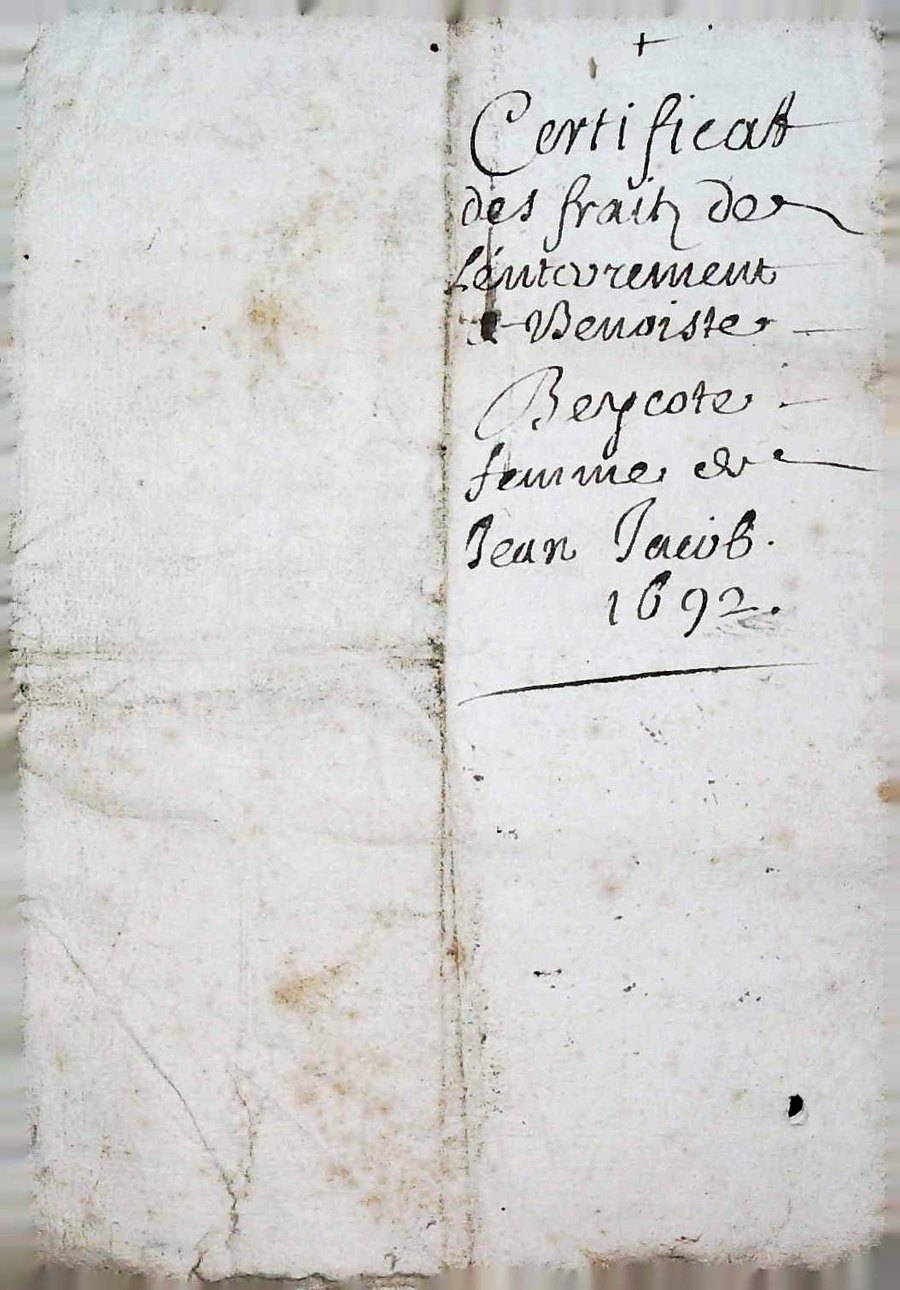 +
Certificat
des frait de
L'entérement
Benoiste
Beycote
femme de
Jean Jacob.
1692.